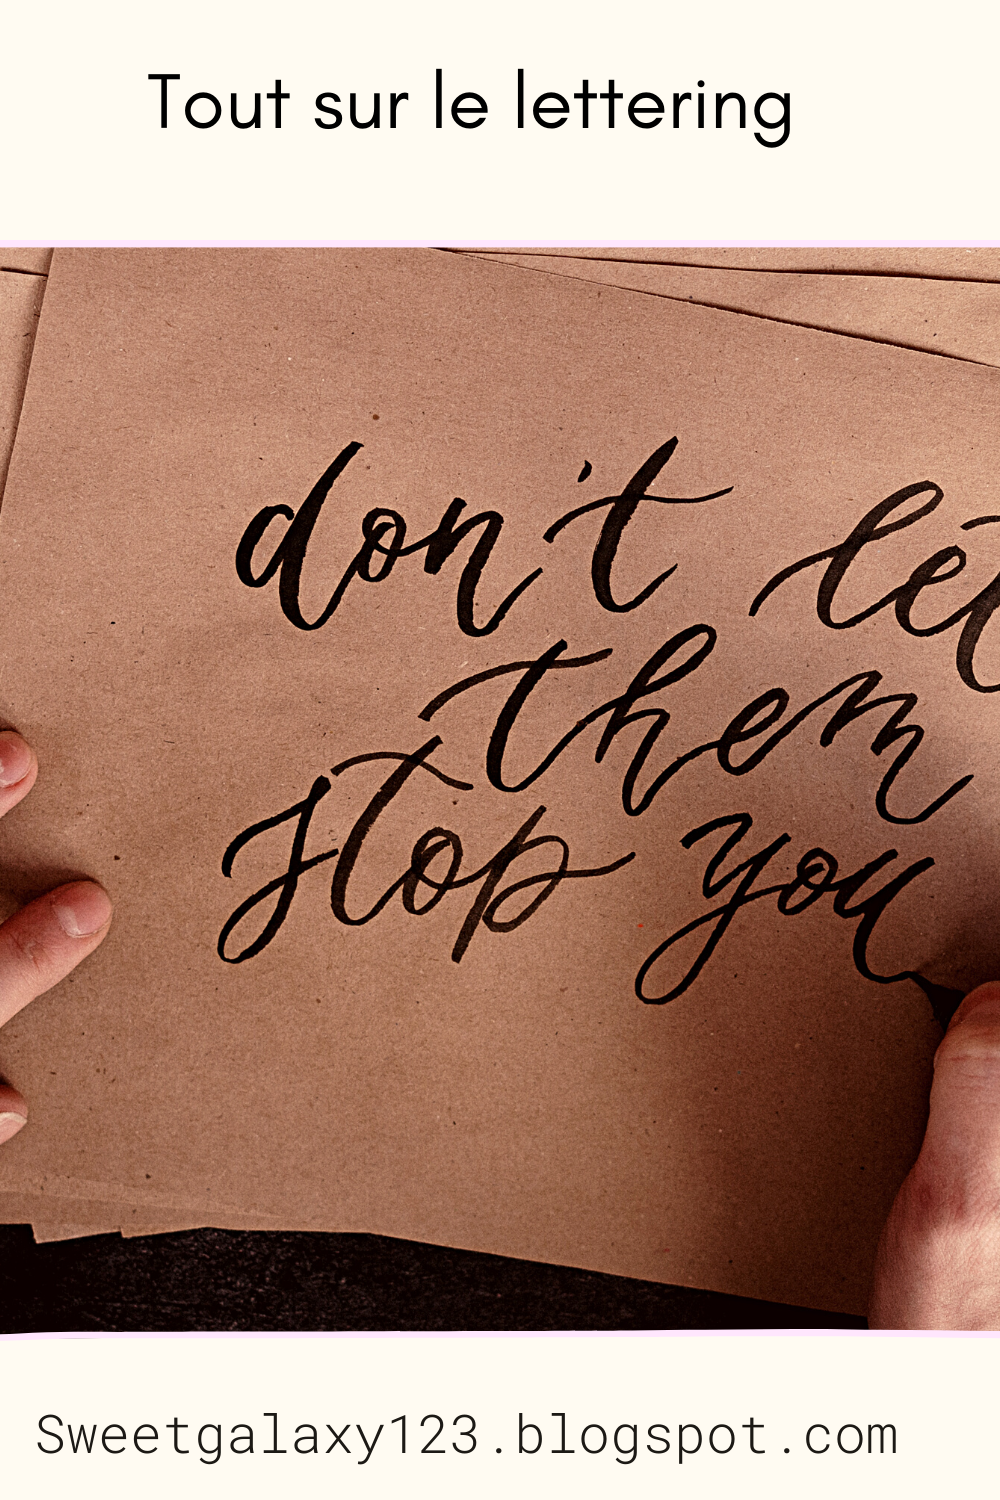 Tout sur le lettering
don't let
them
stop you
Sweetgalaxy123.blogspot.com